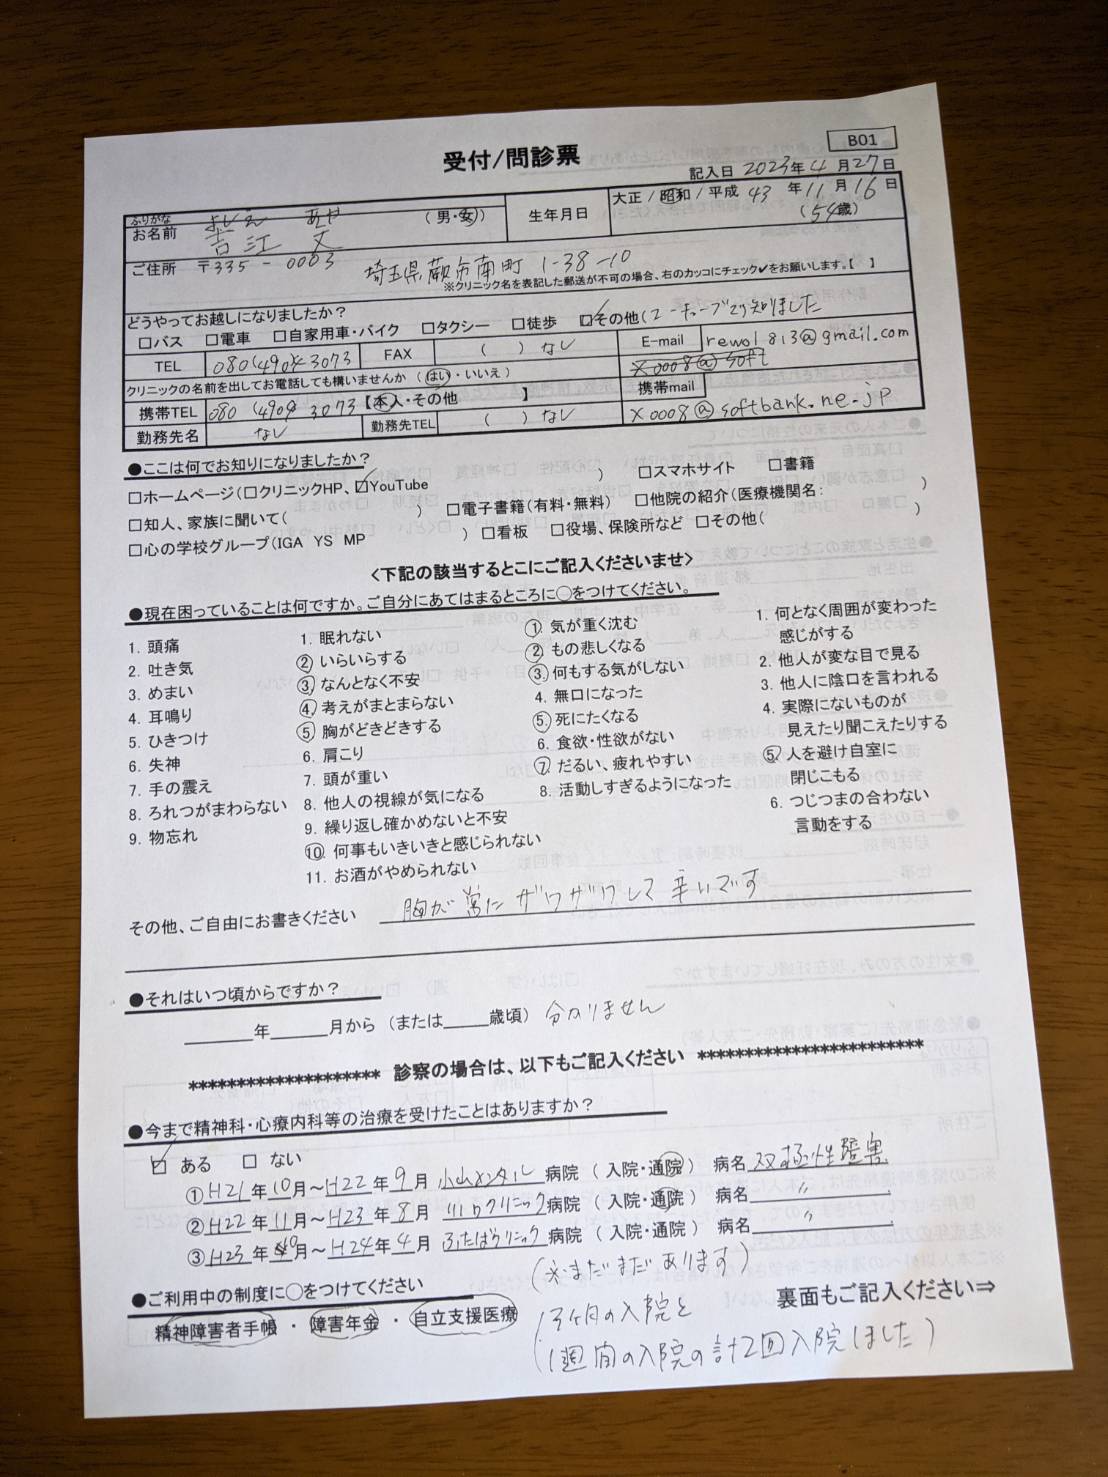 受付/問診票
B01
記入日 2023年4月27日
ふりがな よしえ あや
お名前 吉江 文 (男・女)
生年月日 大正 / 昭和 / 平成 43 年 11 月 16 日
(54歳)
ご住所 〒335-0003 埼玉県蕨市南町 1-38-10
※クリニック名を表記した郵送が不可の場合、右のカッコにチェック✔をお願いします。【 】
どうやってお越しになりましたか?
□バス □電車 □自家用車・バイク □タクシー □徒歩 ☑その他(ユーチューブで知りました
TEL 080(490)3073 FAX ( ) なし E-mail rewol813@gmail.com
クリニックの名前を出してお電話しても構いませんか (はい・いいえ) x0008@soft
携帯TEL 080 (490) 3073 【本人・その他 】 携帯mail
勤務先名 なし 勤務先TEL ( ) なし x0008@softbank.ne.jp
●ここは何でお知りになりましたか?
□ホームページ(□クリニックHP、☑YouTube ) □スマホサイト □書籍
□知人、家族に聞いて( ) □電子書籍(有料・無料) □他院の紹介(医療機関名: )
□心の学校グループ(IGA YS MP ) □看板 □役場、保険所など □その他( )
<下記の該当するとこにご記入くださいませ>
●現在困っていることは何ですか。ご自分にあてはまるところに○をつけてください。
1. 頭痛
2. 吐き気
3. めまい
4. 耳鳴り
5. ひきつけ
6. 失神
7. 手の震え
8. ろれつがまわらない
9. 物忘れ
1. 眠れない
② いらいらする
③ なんとなく不安
④ 考えがまとまらない
⑤ 胸がどきどきする
6. 肩こり
7. 頭が重い
8. 他人の視線が気になる
9. 繰り返し確かめないと不安
⑩ 何事もいきいきと感じられない
11. お酒がやめられない
① 気が重く沈む
② もの悲しくなる
③ 何もする気がしない
4. 無口になった
⑤ 死にたくなる
6. 食欲・性欲がない
⑦ だるい、疲れやすい
8. 活動しすぎるようになった
1. 何となく周囲が変わった
感じがする
2. 他人が変な目で見る
3. 他人に陰口を言われる
4. 実際にないものが
見えたり聞こえたりする
⑤ 人を避け自室に
閉じこもる
6. つじつまの合わない
言動をする
その他、ご自由にお書きください 胸が常にザワザワして辛いです
●それはいつ頃からですか?
年 月から (または 歳頃) 分かりません
******************** 診察の場合は、以下もご記入ください ************************
●今まで精神科・心療内科等の治療を受けたことはありますか?
☑ ある □ ない
①H21年10月～H22年9月 小山メンタル 病院 ( 入院・通院) 病名 双極性障害
②H22年11月～H23年8月 川口クリニック病院 ( 入院・通院) 病名 〃
③H23年10月～H24年4月 ふたばクリニック病院 ( 入院・通院) 病名 〃
(※まだまだあります)
●ご利用中の制度に○をつけてください
裏面もご記入ください⇒
精神障害者手帳 ・ 障害年金 ・ 自立支援医療
(3ヶ月の入院と
1週間の入院の計2回入院しました)